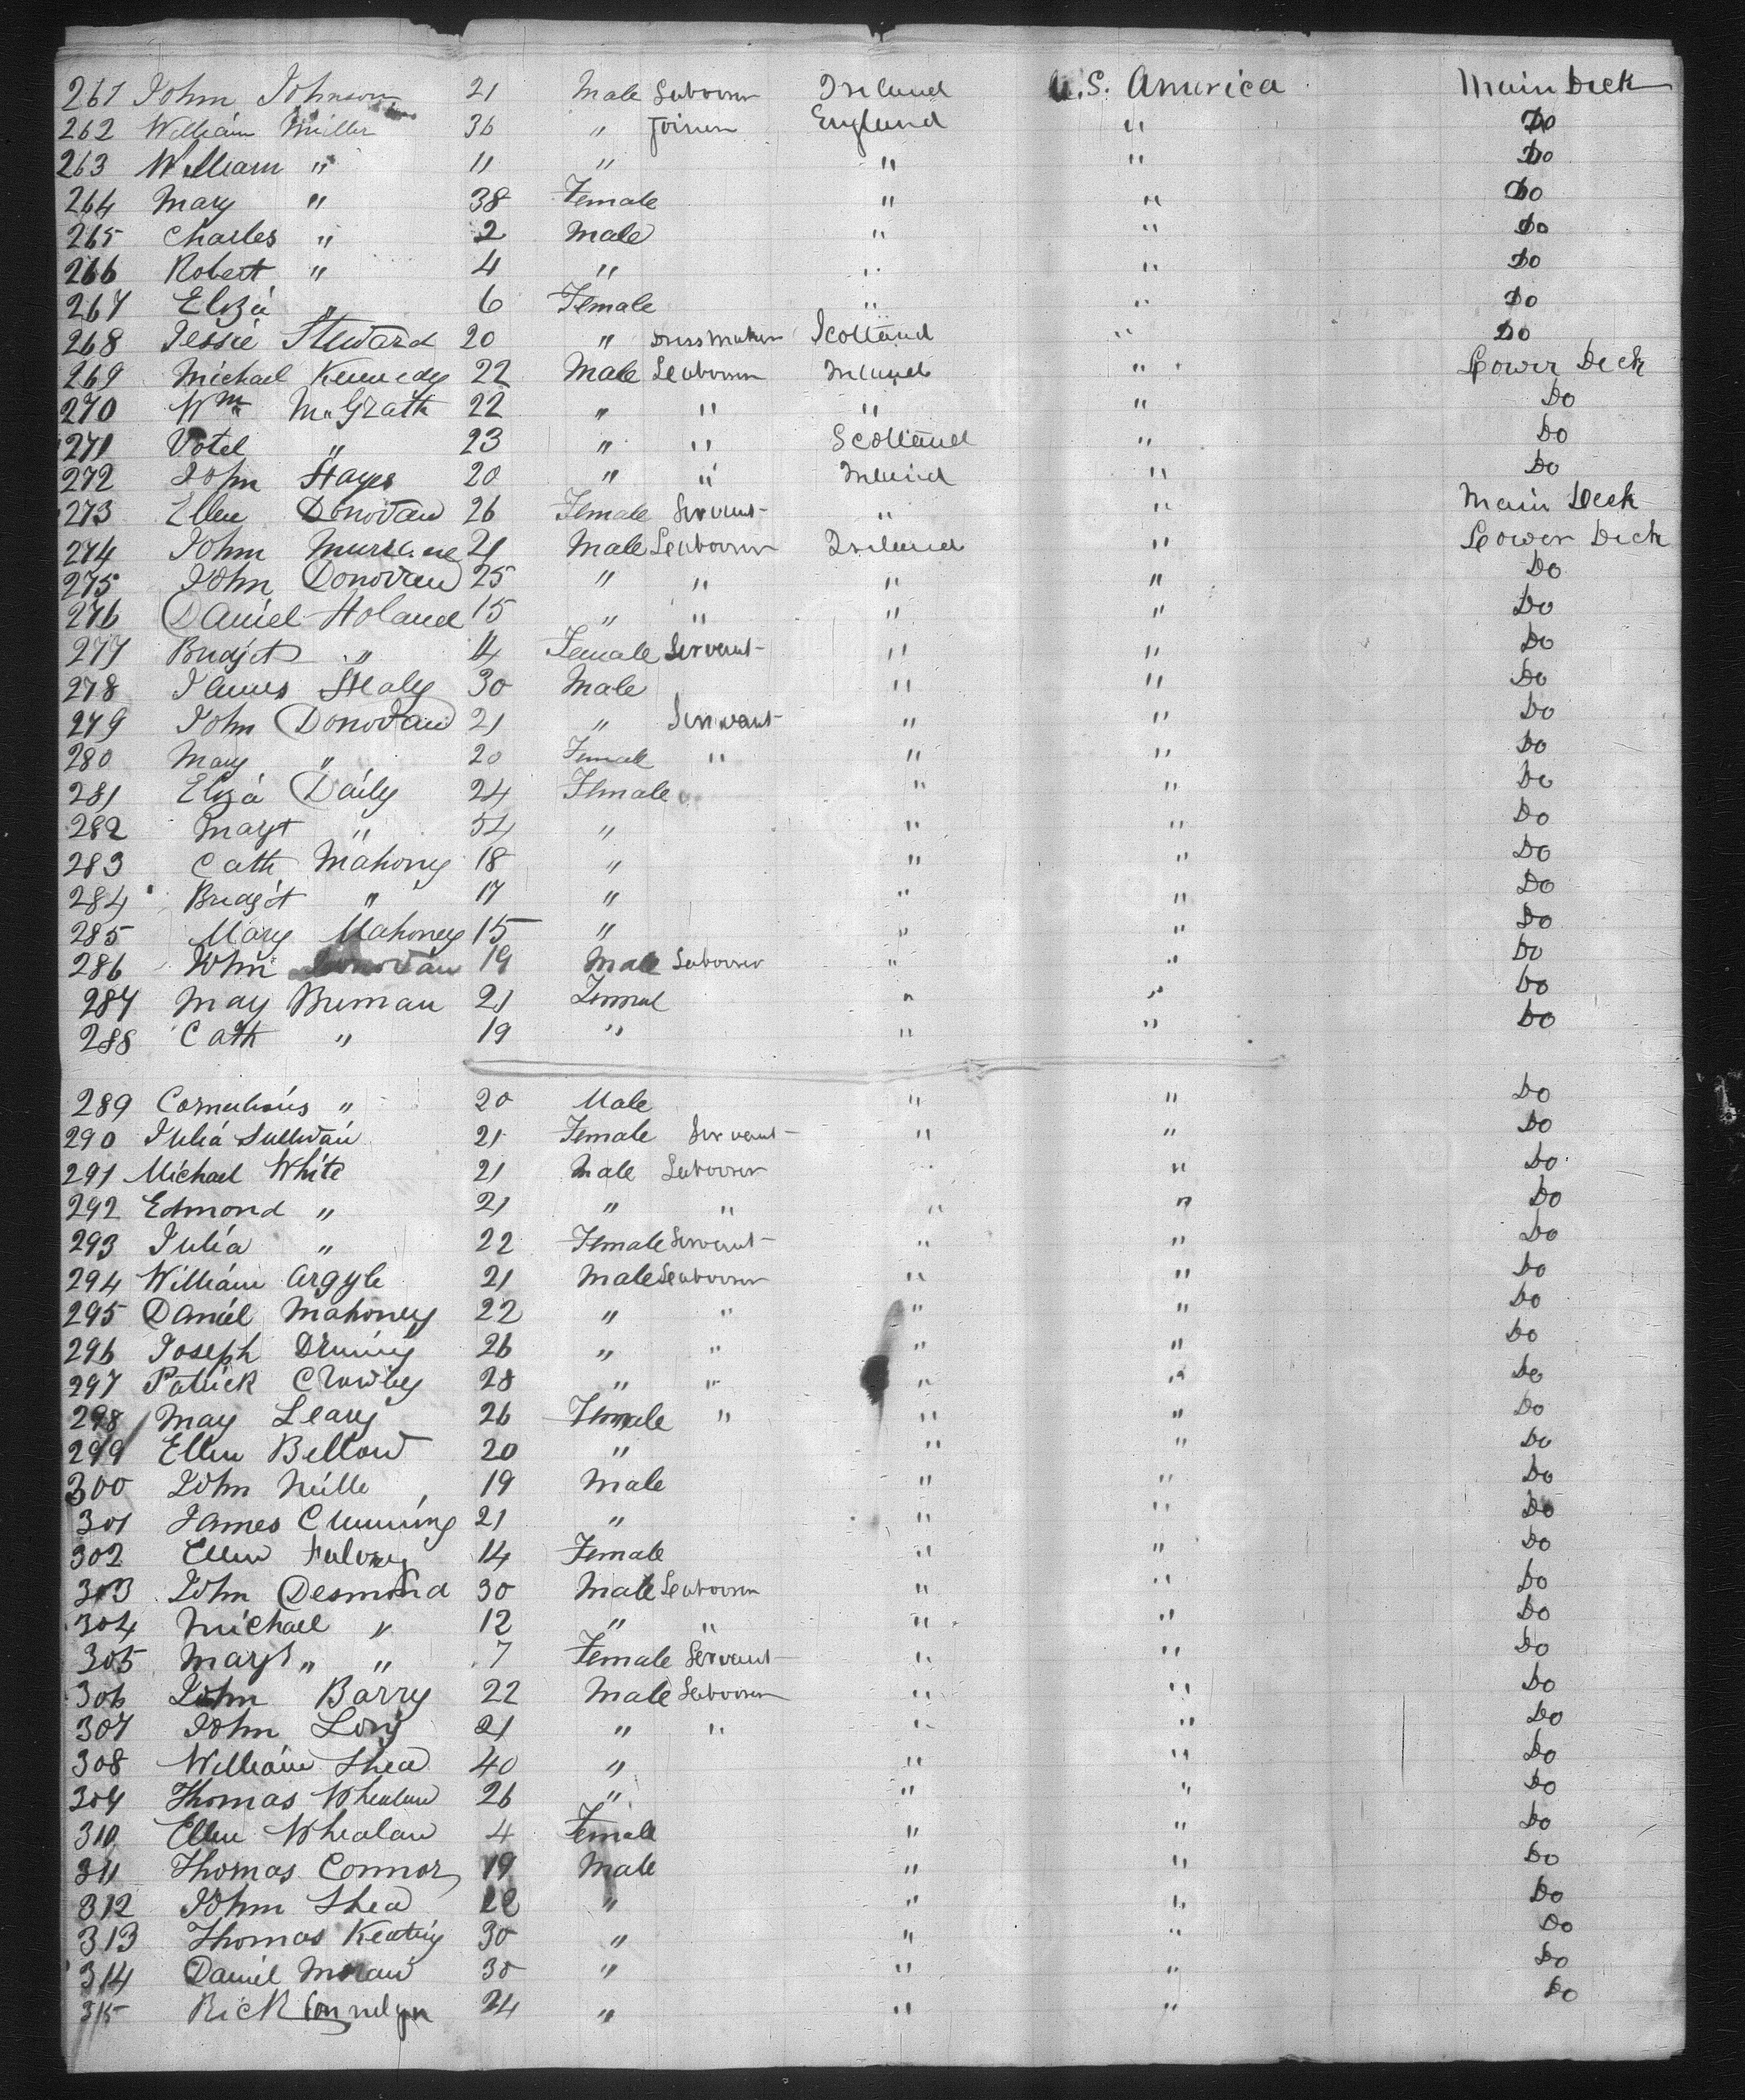 261 John Johnson 21 Male Labourer Ireland U.S. America Main Deck
262 William Miller 36 " Joiner England " Do
263 William " 11 " " " Do
264 Mary " 38 Female " " Do
265 Charles " 2 Male " " Do
266 Robert " 4 " " " Do
267 Eliza " 6 Female " " Do
268 Jessie Steward 20 " Dressmaker Scotland " Do
269 Michael Kennedy 22 Male Labourer Ireland " Lower Deck
270 Wm McGrath 22 " " " " Do
271 " 23 " " Scotland " Do
272 John Hayes 20 " " Ireland " Do
273 Ellen Donovan 26 Female Servant " " Main Deck
274 John 21 Male Labourer Ireland " Lower Deck
275 John Donovan 25 " " " " Do
276 Daniel Holand 15 " " " " Do
277 Bridjet " Female Servant " " Do
278 James Healy 30 Male " " Do
279 John Donovan 21 " Servant " " Do
280 Mary " 20 Female " " " Do
281 Eliza Daily 24 Female " " Do
282 Margt " 54 " " " Do
283 Cath Mahony 18 " " " Do
284 Bridjet " 17 " " " Do
285 Mary Mahoney 15 " " " Do
286 John Donovan 19 Male Labourer " " Do
287 May 21 Female " " Do
288 Cath " 19 " " " Do
289 Cornelious " 20 Male " " Do
290 Julia Sullivan 21 Female Servant " " Do
291 Michael White 21 Male Labourer " " Do
292 Edmond " 21 " " " " Do
293 Julia " 22 Female Servant " " Do
294 William Argyle 21 Male Labourer " " Do
295 Daniel Mahoney 22 " " " " Do
296 Joseph 26 " " " " Do
297 Patrick Crowley 28 " " " " Do
298 May Leary 26 Female " " " Do
299 Ellen 20 " " " Do
300 John 19 Male " " Do
301 James Cumming 21 " " " Do
302 Ellen Fulvey 14 Female " " Do
303 John Desmond 30 Male Labourer " " Do
304 Michael " 12 " " " " Do
305 Margt " " 7 Female Servant " " Do
306 John Barry 22 Male Labourer " " Do
307 John Long 21 " " " " Do
308 William Shea 40 " " " Do
309 Thomas Whealan 26 " " " Do
310 Ellen Whealan 4 Female " " Do
311 Thomas Connor 19 Male " " Do
312 John Shea " " " Do
313 Thomas Keating 30 " " " Do
314 Daniel Moran 30 " " " Do
315 Rick 24 " " " Do